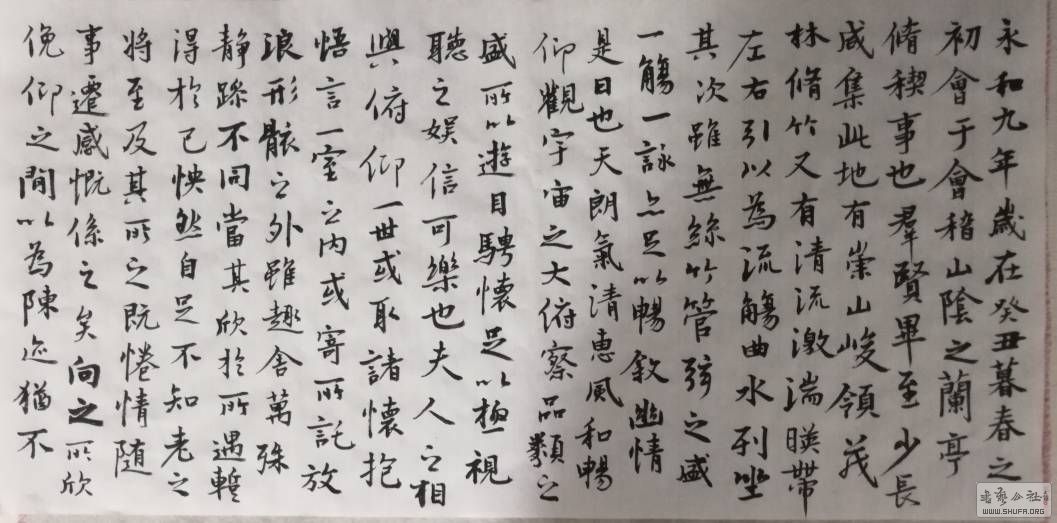 永和九年歲在癸丑暮春之
初會于會稽山陰之蘭亭
脩稧事也羣賢畢至少長
咸集此地有崇山峻領茂
林脩竹又有清流激湍暎帶
左右引以為流觴曲水列坐
其次雖無絲竹管弦之盛
一觴一詠亦足以暢敘幽情
是日也天朗氣清惠風和暢
仰觀宇宙之大俯察品類之
盛所以遊目騁懷足以極視
聽之娛信可樂也夫人之相
與俯仰一世或取諸懷抱
悟言一室之內或寄所託放
浪形骸之外雖趣舍萬殊
静躁不同當其欣於所遇暫
得於己怏然自足不知老之
將至及其所之既惓情隨
事遷感慨係之矣向之所欣
俛仰之間以為陳迹猶不
書艺公社
WWW.SHUFA.ORG